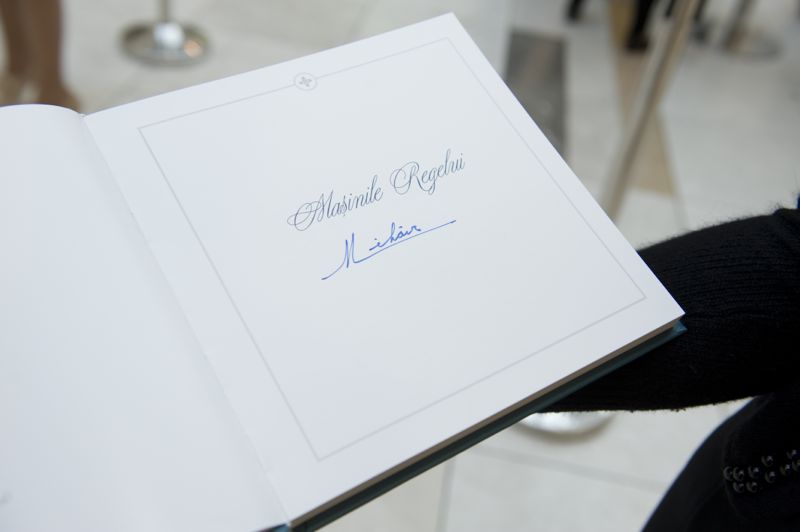 Mașinile Regelui
Mihai R